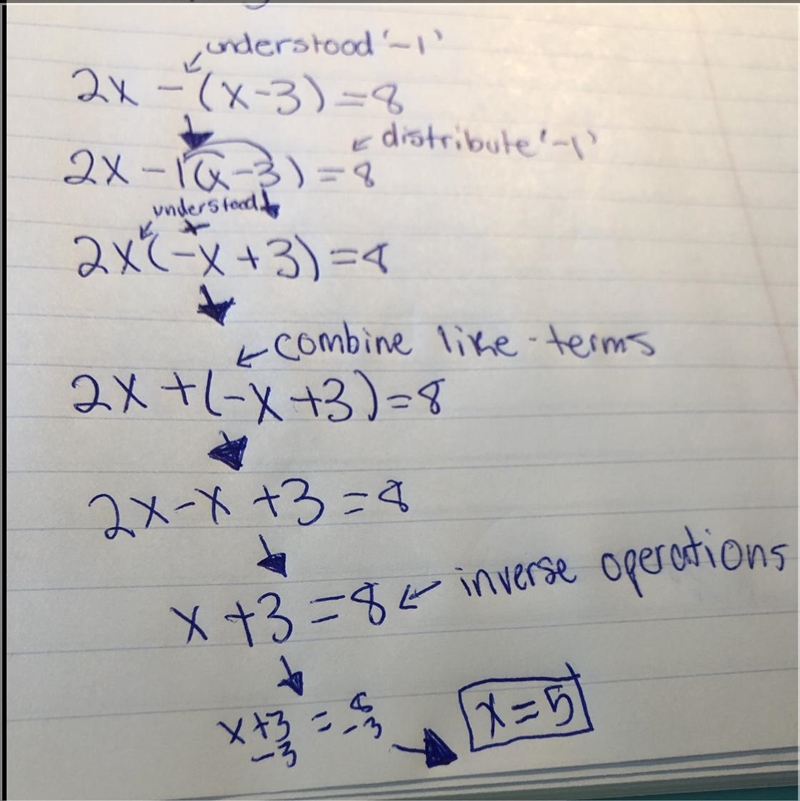 understood '-1'
2x - (x-3) = 8
2x - 1(x-3) = 8 distribute '-1'
understood +
2x(-x+3) = 8
combine like-terms
2x + (-x+3) = 8
2x - x + 3 = 8
x + 3 = 8 inverse operations
x+3 = 8
-3 -3
x = 5